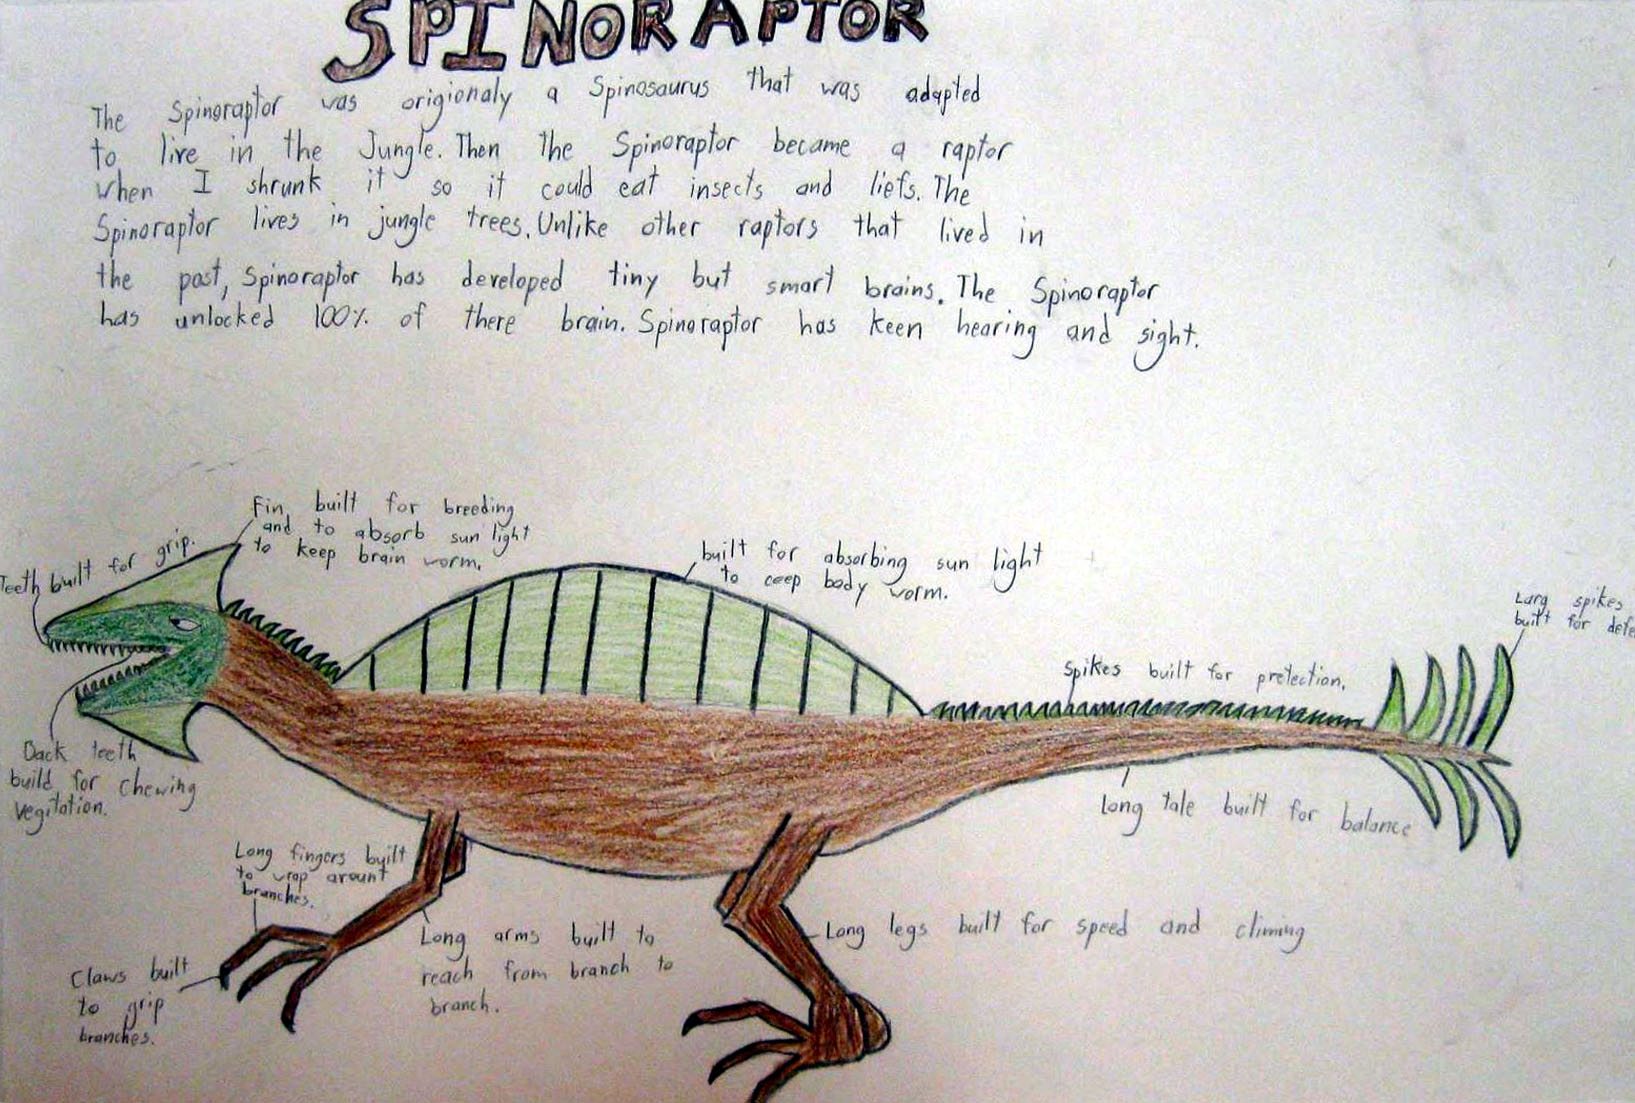 SPINORAPTOR
The Spinoraptor was origionaly a Spinosaurus that was adapted
to live in the Jungle. Then the Spinoraptor became a raptor
when I shrunk it so it could eat insects and liefs. The
Spinoraptor lives in jungle trees. Unlike other raptors that lived in
the past, Spinoraptor has developed tiny but smart brains. The Spinoraptor
has unlocked 100% of there brain. Spinoraptor has keen hearing and sight.
Fin, built for breeding
and to absorb sun light
to keep brain worm.
Teeth built for grip.
built for absorbing sun light
to ceep body worm.
Larg spikes
built for defe
Spikes built for pretection.
Back teeth
build for chewing
vegitation.
Long tale built for balance
Long fingers built
to wrap around
branches.
Long arms built to
reach from branch to
branch.
Long legs built for speed and climing
Claws built
to grip
branches.